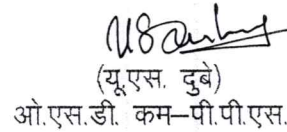 (यू.एस. दुबे)
ओ.एस.डी. कम–पी.पी.एस.